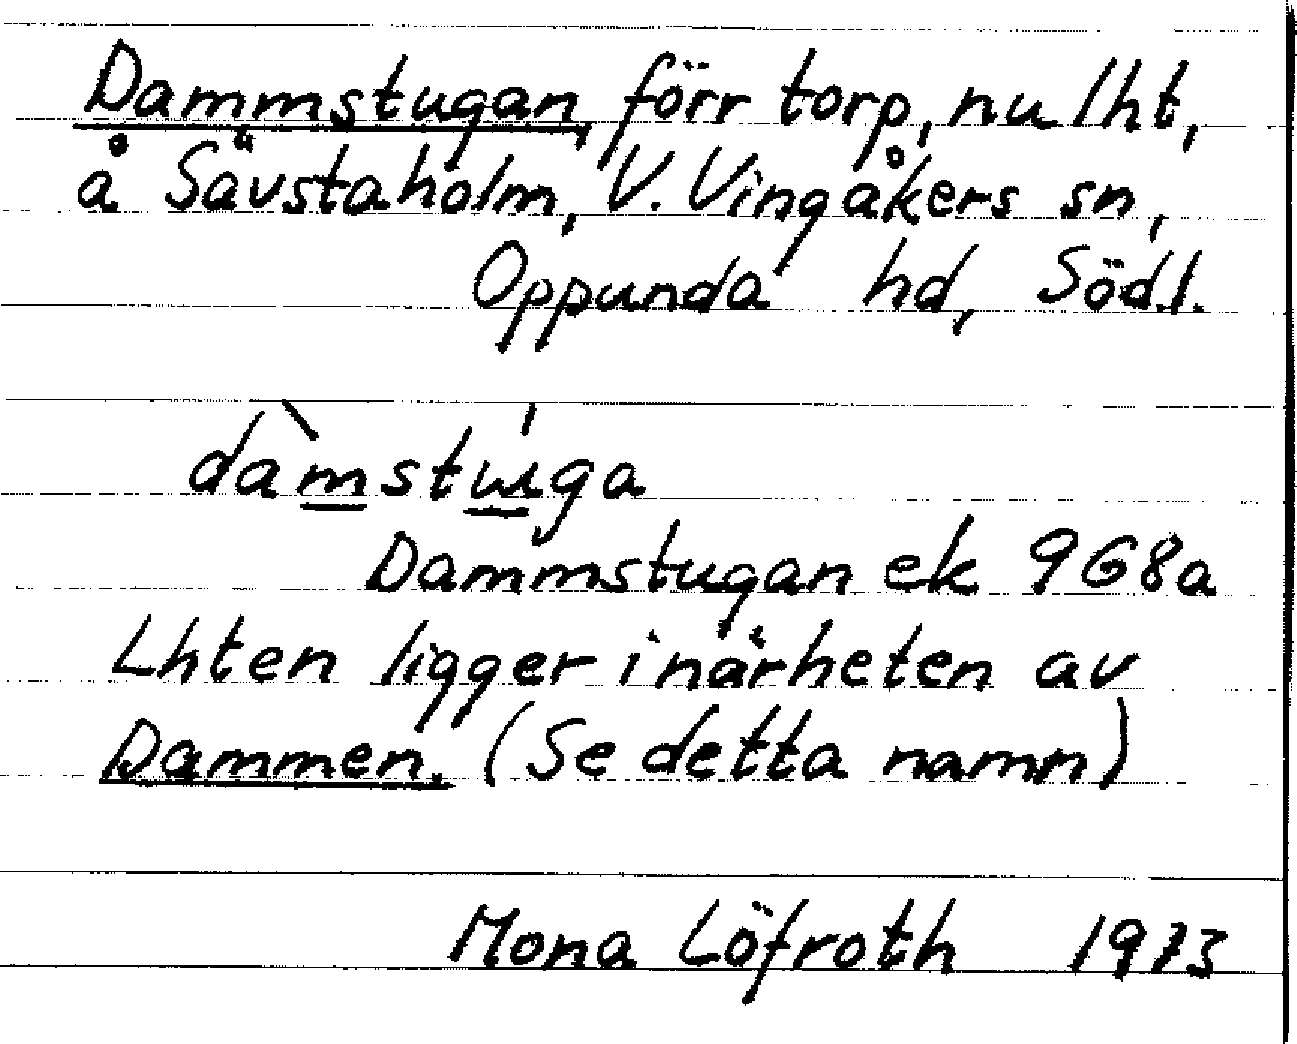 Dammstugan, förr torp, nu lht,
å Sävstaholm, V. Vingåkers sn,
Oppunda hd, Södl.
dàmstɯ́ga
Dammstugan ek 9G8a
Lhten ligger i närheten av
Dammen. (Se detta namn)
Mona Löfroth 1973